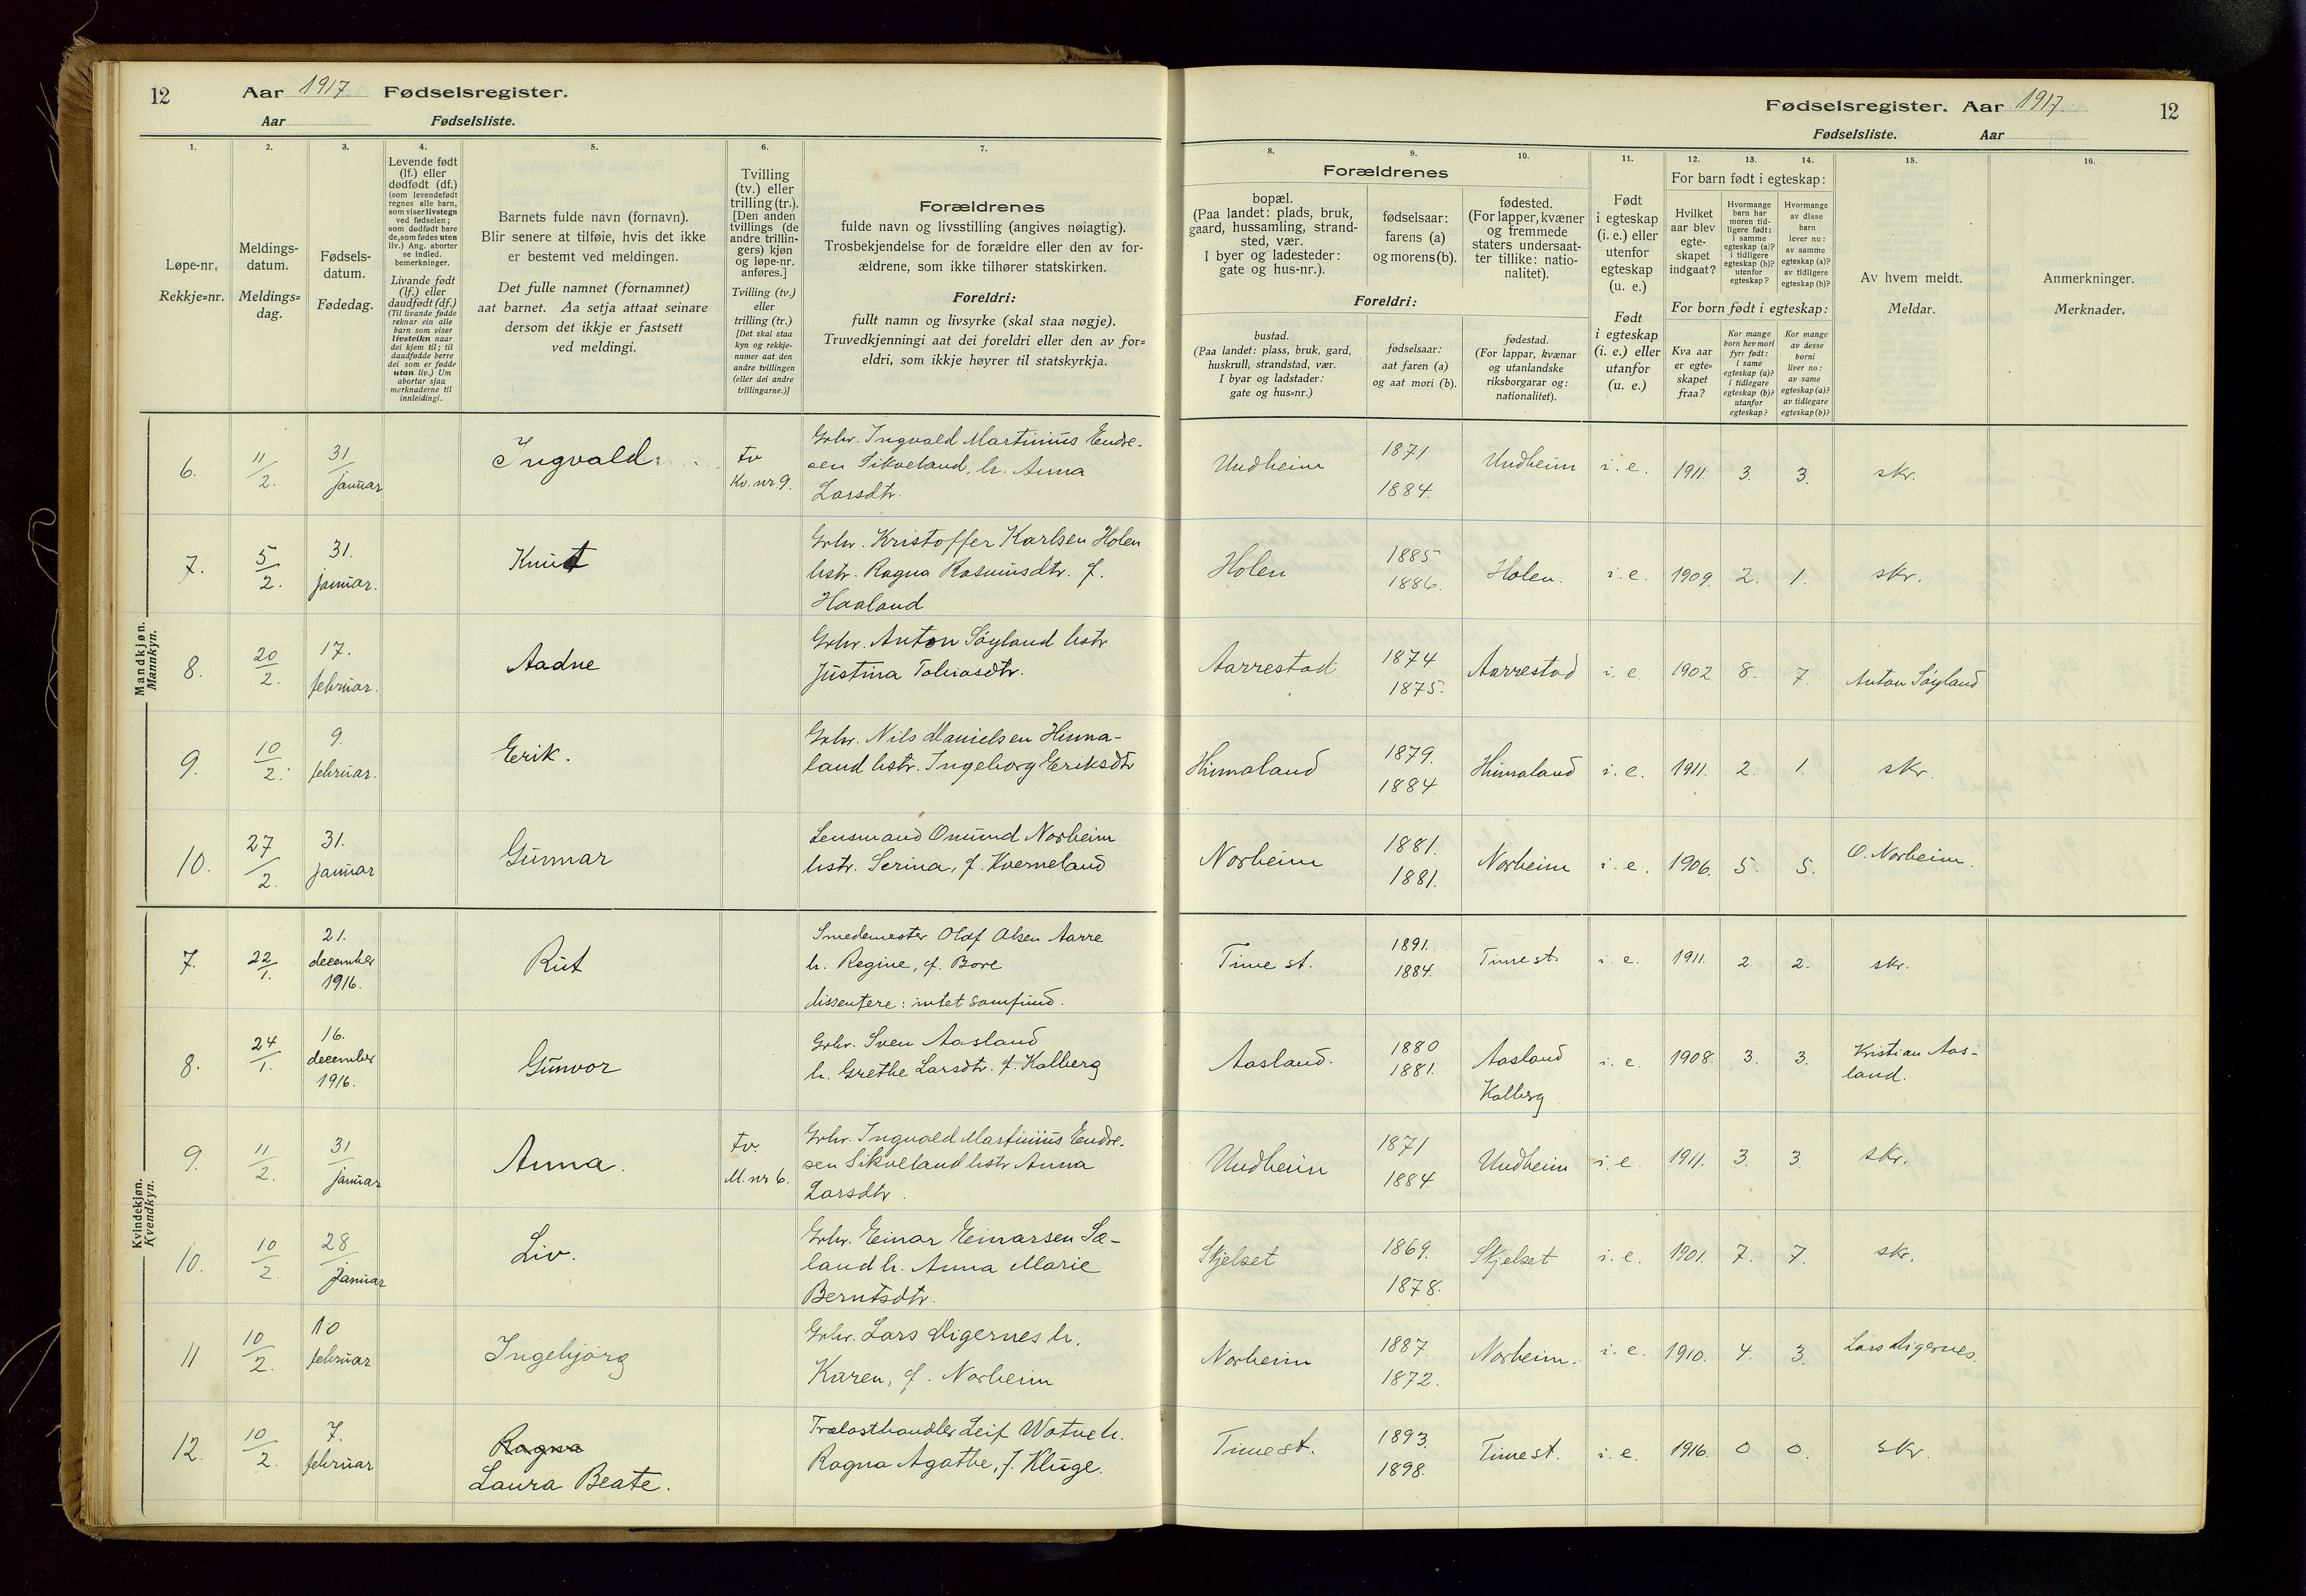 12 Aar 1917. Fødselsregister.
Aar Fødselsliste.
Fødselsregister. Aar 1917. 12
Fødselsliste. Aar
1. 2. 3. 4. 5. 6. 7.
Løpe-nr.
Rekkje=nr.
Meldings-
datum.
Meldings=
dag.
Fødsels-
datum.
Fødedag.
Levende født
(lf.) eller
dødfødt (df.)
(som levendefødt
regnes alle barn,
som viser livstegn
ved fødselen;
som dødfødt bare
de, som fødes uten
liv.) Ang. aborter
se indled.
bemerkninger.
Livande født
(lf.) eller
daudfødt (df.)
(Til livande fødde
reknar ein alle
barn som viser
livsteikn naar
dei kjem til; til
daudfødde berre
dei som er fødde
utan liv.) Um
abortar sjaa
merknaderne til
innleidingi.
Barnets fulde navn (fornavn).
Blir senere at tilføie, hvis det ikke
er bestemt ved meldingen.
Det fulle namnet (fornamnet)
aat barnet. Aa setja attaat seinare
dersom det ikkje er fastsett
ved meldingi.
Tvilling
(tv.) eller
trilling (tr.).
[Den anden
tvillings (de
andre trillin-
gers) kjøn
og løpe-nr.
anføres.]
Tvilling (tv.)
eller
trilling (tr.)
[Det skal staa
kyn og rekkje-
numer aat den
andre tvillingen
(eller dei andre
trillingarne.)]
Forældrenes
fulde navn og livsstilling (angives nøiagtig).
Trosbekjendelse for de forældre eller den av for-
ældrene, som ikke tilhører statskirken.
Foreldri:
fullt namn og livsyrke (skal staa nøgje).
Truvedkjenningi aat dei foreldri eller den av for=
eldri, som ikkje høyrer til statskyrkja.
8. 9. 10. 11. 12. 13. 14. 15. 16.
Forældrenes
bopæl.
(Paa landet: plads, bruk,
gaard, hussamling, strand-
sted, vær.
I byer og ladesteder:
gate og hus-nr.).
fødselsaar:
farens (a)
og morens (b).
fødested.
(For lapper, kvæner
og fremmede
staters undersaat-
ter tillike: natio-
nalitet).
Foreldri:
bustad.
(Paa landet: plass, bruk, gard,
huskrull, strandstad, vær.
I byar og ladstader:
gate og hus=nr.)
fødselsaar:
aat faren (a)
og aat mori (b).
fødestad.
(For lappar, kvænar
og utanlandske
riksborgarar og:
nationalitet).
Født
i egteskap
(i. e.) eller
utenfor
egteskap
(u. e.)
Født
i egteskap
(i. e.) eller
utanfor
(u. e.)
For barn født i egteskap:
Hvilket
aar blev
egte-
skapet
indgaat?
Hvormange
barn har
moren tid-
ligere født:
i samme
egteskap (a)?
i tidligere
egteskap (b)?
utenfor
egteskap?
Hvormange
av disse
barn
lever nu:
av samme
egteskap (a)?
av tidligere
egteskap (b)?
For born født i egteskap:
Kva aar
er egte=
skapet
fraa?
Kor mange
born hev mori
fyrr født:
i same
egteskap (a)?
i tidlegare
egteskap (b)?
utanfor
egteskap?
Kor mange
av desse
borni
liver no:
av same
egteskap (a)?
av tidlegare
egteskap (b)?
Av hvem meldt.
Meldar.
Anmerkninger.
Merknader.
Mandkjøn.
Mannkyn.
6. 11/2. 31/januar Ingvald. tv Kv. nr 9. Grbr. Ingvald Martinius Endre-
sen Sikveland, h. Anna
Larsdtr.
Undheim 1871 1884. Undheim i. e. 1911. 3. 3. skr.
7. 5/2. 31. januar. Knut Grbr. Kristoffer Karlsen Holen
hstr. Ragna Rasmusdtr. f.
Haaland
Holen 1885 1886. Holen. i. e. 1909. 2. 1. skr.
8. 20/2. 17. februar. Aadne Grbr. Anton Søyland hstr
Justina Tobiasdtr.
Aarrestad 1874 1875. Aarrestad i. e. 1902 8. 7. Anton Søyland
9. 10/2. 9. februar. Erik. Grbr. Nils Danielsen Hinna-
land hstr. Ingeborg Eriksdtr
Hinnaland 1879. 1884. Hinnaland i. e. 1911. 2. 1. skr.
10. 27/2. 31. januar Gunnar Lensmand Omund Norheim
hstr. Serina, f. Kverneland
Norheim 1881. 1881. Norheim i. e. 1906. 5. 5. O. Norheim.
Kvindekjøn.
Kvendkyn.
7. 22/1. 21. december 1916. Rut Smedemester Olaf Olsen Aarre
h. Regine, f. Bore
dissentere: intet samfund.
Time st. 1891. 1884. Time st. i. e. 1911. 2 2. skr.
8. 24/1. 16. december 1916. Gunvor Grbr. Sven Aasland
h. Grethe Larsdtr. f. Kalberg
Aasland. 1880 1881. Aasland
Kalberg i. e. 1908. 3. 3. Kristian Aas-
land.
9. 11/2. 31/januar Anna. tv. M. nr 6. Grbr. Ingvald Martinius Endre-
sen Sikveland hstr Anna
Larsdtr.
Undheim 1871 1884 Undheim i. e. 1911. 3. 3. skr.
10. 10/2. 28/januar Liv. Grbr. Einar Einarsen Sæ-
land h. Anna Marie
Berntsdtr.
Skjelset 1869. 1878. Skjelset i. e. 1901. 7. 7. skr.
11 10/2. 10 februar Ingebjørg Grbr. Lars Digernes h.
Karen, f. Norheim
Norheim 1887. 1872. Norheim. i. e. 1910. 4. 3. Lars Digernes.
12. 10/2. 7. februar Ragna
Laura Beate. Trælasthandler Leif Watne h.
Ragna Agathe, f. Kluge.
Time st. 1893. 1898. Time st. i. e. 1916. 0 0. skr.